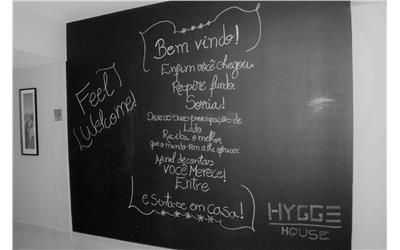 Feel
Welcome!
Bem vindo!
Enfim você chegou
Respire fundo.
Sorria!
Deixe as suas preocupações de
Lado
Receba o melhor
que o mundo tem a lhe oferecer.
Afinal de contas
VOCÊ Merece!
Entre
e sinta-se em casa!
HYGGE
HOUSE